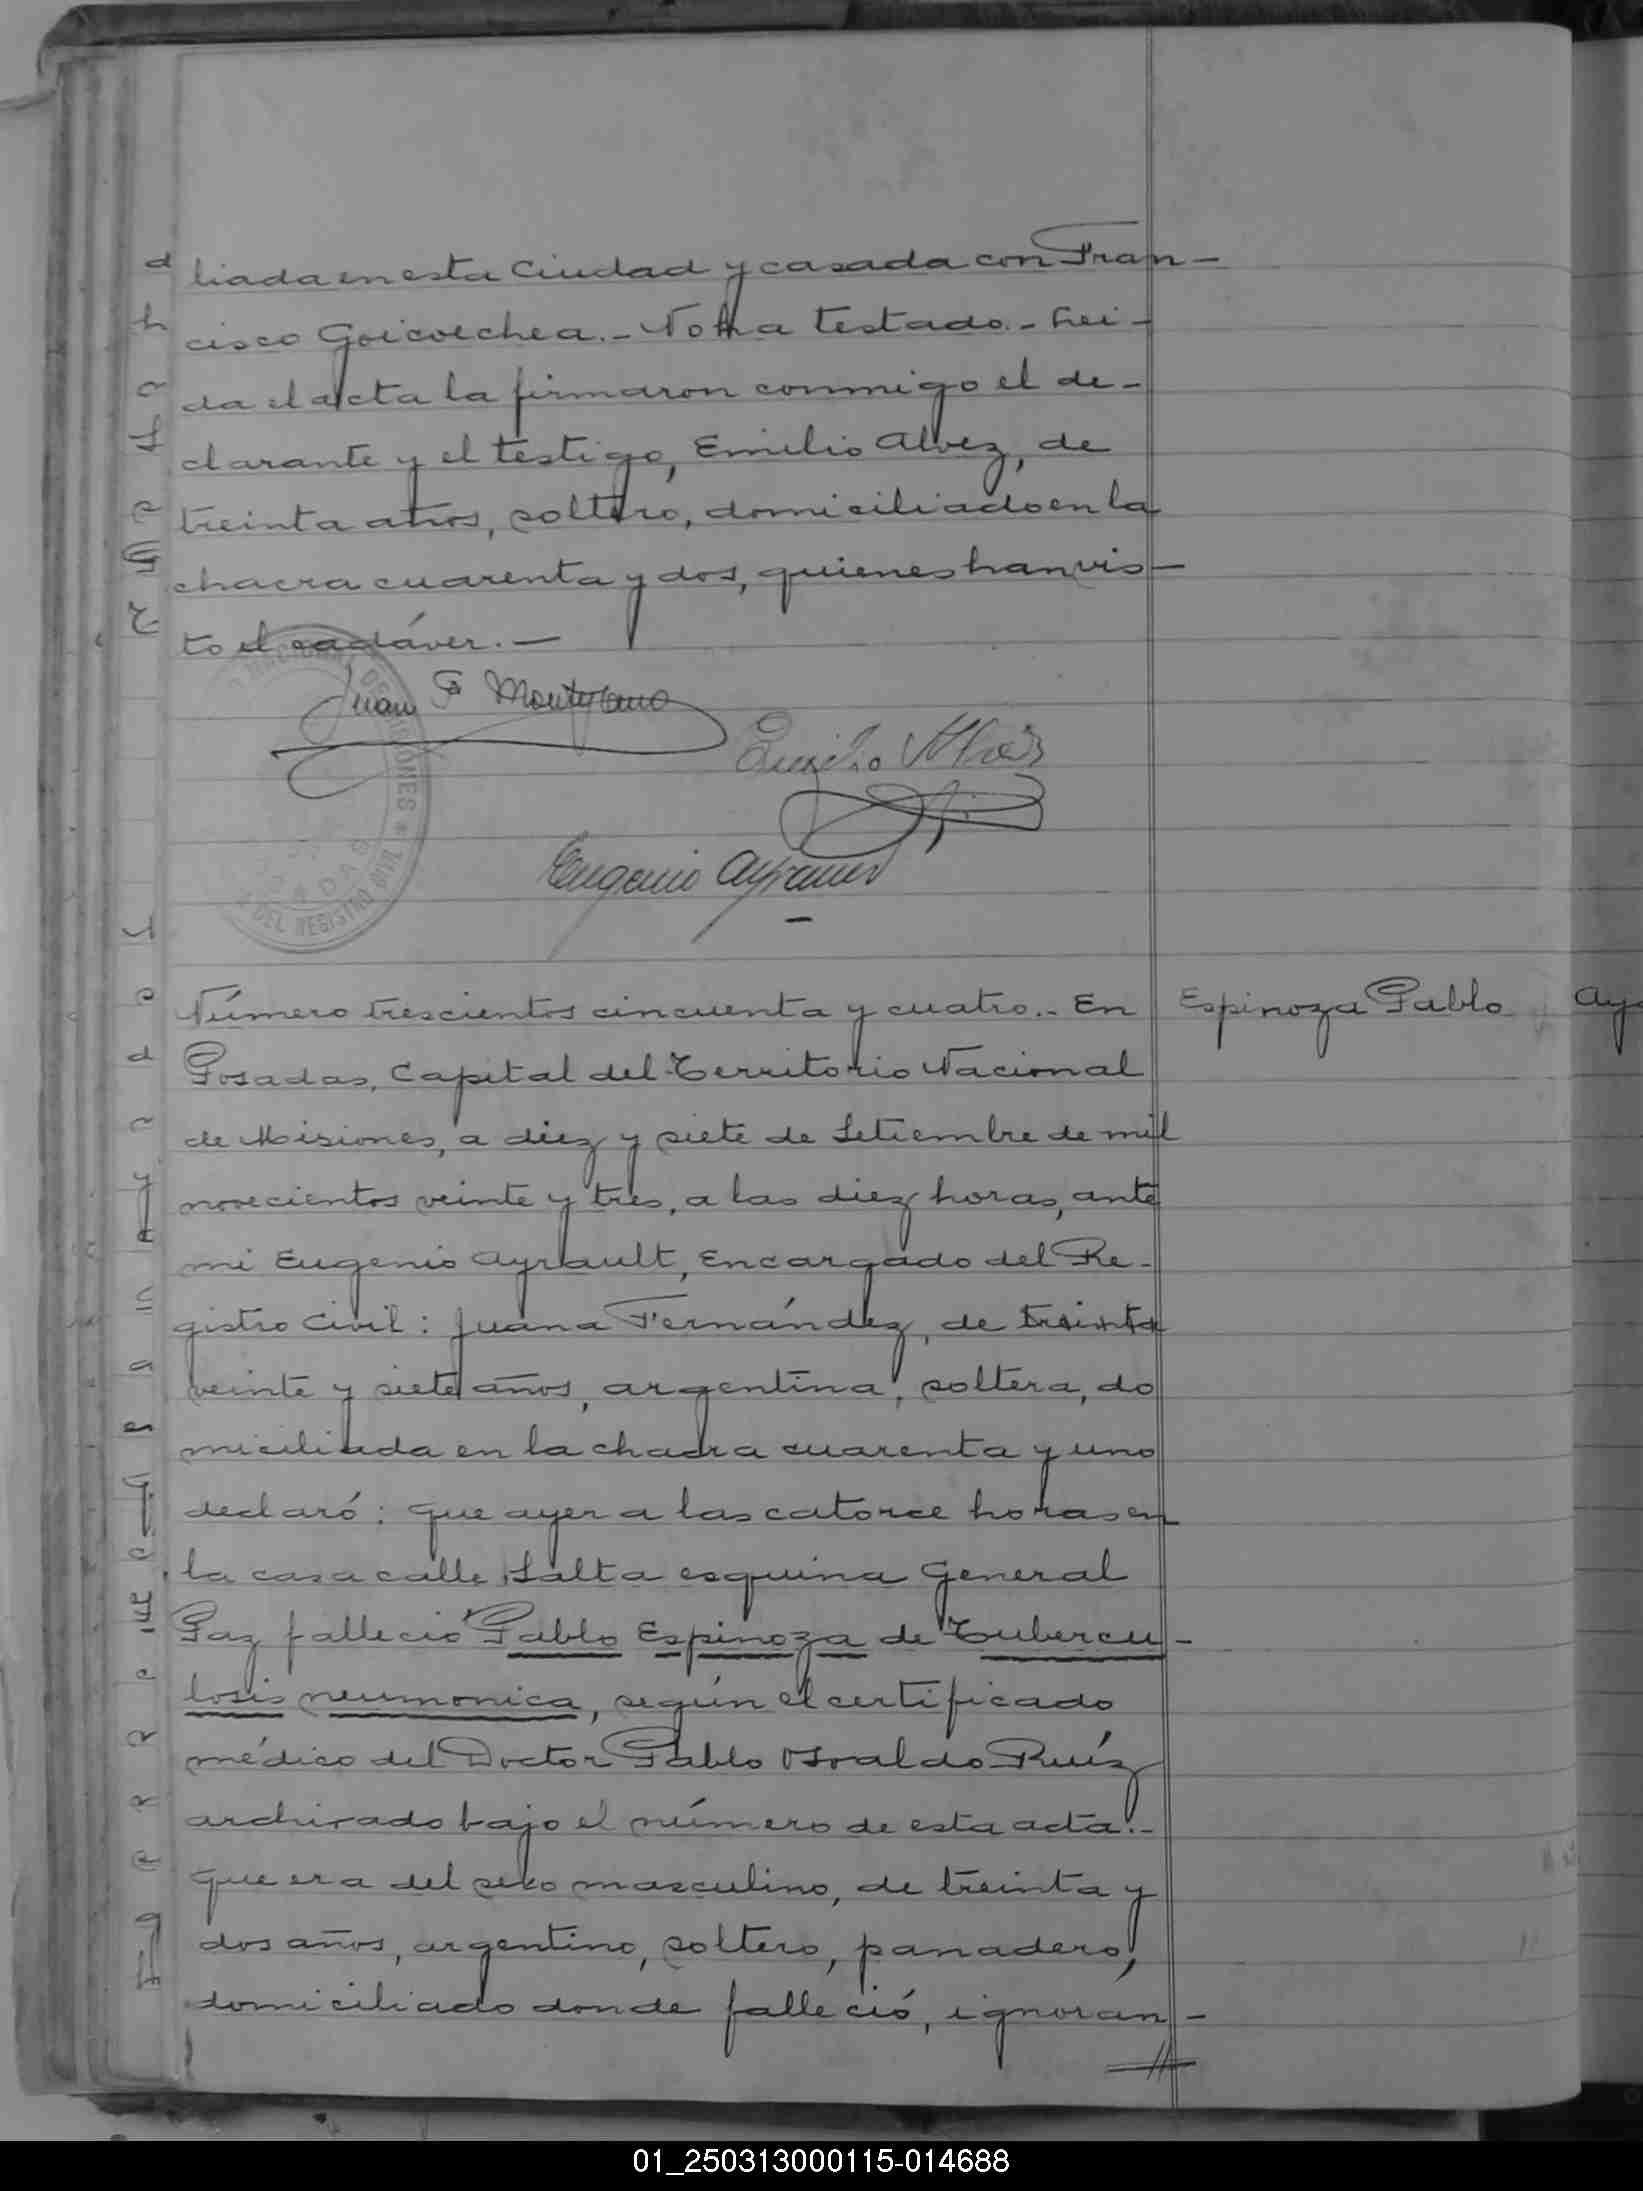 liada en esta Ciudad y casada con Fran-
cisco Goicoechea.- No ha testado.- Leí-
da el acta la firmaron conmigo el de-
clarante y el testigo, Emilio Alvez, de
treinta años, soltero, domiciliado en la
chacra cuarenta y dos, quienes han vis-
to el cadáver.-
Juan
Emilio Alvez
Eugenio Ayrault
DEL REGISTRO CIVIL
Número trescientos cincuenta y cuatro.- En
Espinoza Pablo
Posadas, Capital del Territorio Nacional
de Misiones, a diez y siete de Setiembre de mil
novecientos veinte y tres, a las diez horas, ante
mi Eugenio Ayrault, Encargado del Re-
gistro Civil: Juana Fernández, de treinta
veinte y siete años, argentina, soltera, do
miciliada en la chacra cuarenta y uno
declaró: que ayer a las catorce horas en
la casa calle Salta esquina General
Paz falleció Pablo Espinoza de Tubercu-
losis neumonica, según el certificado
médico del Doctor Pablo Osvaldo Ruíz
archivado bajo el número de esta acta.-
que era del sexo masculino, de treinta y
dos años, argentino, soltero, panadero,
domiciliado donde falleció, ignoran-
01_250313000115-014688